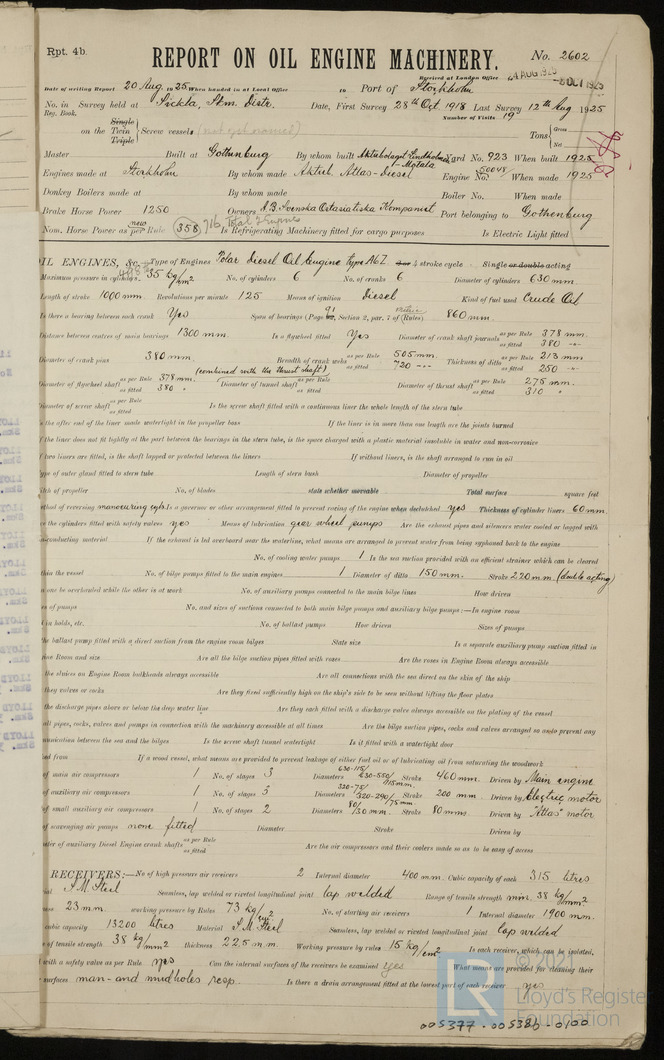 Rpt. 4b.
REPORT ON OIL ENGINE MACHINERY.
No. 2602
Received at London Office
Date of writing Report 20 Aug. 1925 When handed in at Local Office 19 Port of Stockholm
No. in Survey held at Sickla, Skm. Distr. Date, First Survey 28th Oct. 1918 Last Survey 12th Aug 1925
Reg. Book. Number of Visits 19
on the Single Twin Triple Screw vessels (not yet named) Tons Gross Net
Master Built at Gothenburg By whom built Aktiebolaget Lindholmen-Motala Yard No. 923 When built 1925
Engines made at Stockholm By whom made Aktieb. Atlas-Diesel Engine No. 50048 When made 1925
Donkey Boilers made at By whom made Boiler No. When made
Brake Horse Power 1250 Owners A.B. Svenska Ostasiatiska Kompaniet Port belonging to Gothenburg
Nom. Horse Power as per new Rule 358 716 Total 2 Engines Is Refrigerating Machinery fitted for cargo purposes Is Electric Light fitted
OIL ENGINES, &c. Type of Engines Polar Diesel Oil Engine type A6Z 4 stroke cycle Single or double acting
Maximum pressure in cylinders 35 kg/cm² No. of cylinders 6 No. of cranks 6 Diameter of cylinders 630 mm
Length of stroke 1000 mm. Revolutions per minute 125 Means of ignition Diesel Kind of fuel used Crude Oil
Is there a bearing between each crank Yes Span of bearings (Page 91, Section 2, par. 7 of Rules) 860 mm.
Distance between centres of main bearings 1300 mm. Is a flywheel fitted Yes Diameter of crank shaft journals as per Rule 378 mm. as fitted 380
Diameter of crank pins 380 mm. Breadth of crank webs as per Rule 505 mm. as fitted 720 Thickness of ditto as per Rule 213 mm as fitted 250
(combined with the thrust shaft)
Diameter of flywheel shaft as per Rule 378 mm. as fitted 380 Diameter of tunnel shaft as per Rule as fitted Diameter of thrust shaft as per Rule 275 mm. as fitted 310
Diameter of screw shaft as per Rule as fitted Is the screw shaft fitted with a continuous liner the whole length of the stern tube
the after end of the liner made watertight in the propeller boss If the liner is in more than one length are the joints burned
the liner does not fit tightly at the part between the bearings in the stern tube, is the space charged with a plastic material insoluble in water and non-corrosive
two liners are fitted, is the shaft lapped or protected between the liners If without liners, is the shaft arranged to run in oil
type of outer gland fitted to stern tube Length of stern bush Diameter of propeller
Pitch of propeller No. of blades state whether moveable Total surface square feet
method of reversing manœuvring cyls. Is a governor or other arrangement fitted to prevent racing of the engine when declutched yes Thickness of cylinder liners 60 mm.
the cylinders fitted with safety valves yes Means of lubrication gear wheel pumps Are the exhaust pipes and silencers water cooled or lagged with
conducting material If the exhaust is led overboard near the waterline, what means are arranged to prevent water from being syphoned back to the engine
No. of cooling water pumps 1 Is the sea suction provided with an efficient strainer which can be cleared
the vessel No. of bilge pumps fitted to the main engines 1 Diameter of ditto 150 mm. Stroke 220 mm (double acting)
one be overhauled while the other is at work No. of auxiliary pumps connected to the main bilge lines How driven
of pumps No. and sizes of suctions connected to both main bilge pumps and auxiliary bilge pumps:—In engine room
in holds, etc. No. of ballast pumps How driven Sizes of pumps
the ballast pump fitted with a direct suction from the engine room bilges State size Is a separate auxiliary pump suction fitted in
Room and size Are all the bilge suction pipes fitted with roses Are the roses in Engine Room always accessible
the sluices on Engine Room bulkheads always accessible Are all connections with the sea direct on the skin of the ship
they valves or cocks Are they fixed sufficiently high on the ship's side to be seen without lifting the floor plates
the discharge pipes above or below the deep water line Are they each fitted with a discharge valve always accessible on the plating of the vessel
all pipes, cocks, valves and pumps in connection with the machinery accessible at all times Are the bilge suction pipes, cocks and valves arranged so as to prevent any
communication between the sea and the bilges Is the screw shaft tunnel watertight Is it fitted with a watertight door
If a wood vessel, what means are provided to prevent leakage of either fuel oil or of lubricating oil from saturating the woodwork
of main air compressors 1 No. of stages 3 Diameters Stroke 460 mm. Driven by Main engine
of auxiliary air compressors 1 No. of stages 3 Diameters Stroke 200 mm. Driven by Electric motor
of small auxiliary air compressors 1 No. of stages 2 Diameters Stroke 80 mm Driven by "Atlas" motor
of scavenging air pumps none fitted Diameter Stroke Driven by
of auxiliary Diesel Engine crank shafts as per Rule as fitted Are the air compressors and their coolers made so as to be easy of access
RECEIVERS:—No of high pressure air receivers 2 Internal diameter 400 mm. Cubic capacity of each 315 litres
S.M. Steel Seamless, lap welded or riveted longitudinal joint lap welded Range of tensile strength min. 38 kg/mm²
23 mm working pressure by Rules 73 kg/cm² No. of starting air receivers 1 Internal diameter 1900 mm.
cubic capacity 13200 litres Material S.M. Steel Seamless, lap welded or riveted longitudinal joint lap welded
of tensile strength 38 kg/mm² thickness 22,5 m.m. Working pressure by rules 15 kg/cm². Is each receiver, which can be isolated,
with a safety valve as per Rule yes Can the internal surfaces of the receivers be examined yes What means are provided for cleaning their
surfaces man- and mudholes resp. Is there a drain arrangement fitted at the lowest part of each receiver yes
© 2021
LR
Lloyd's Register
Foundation
005377-005386-0100